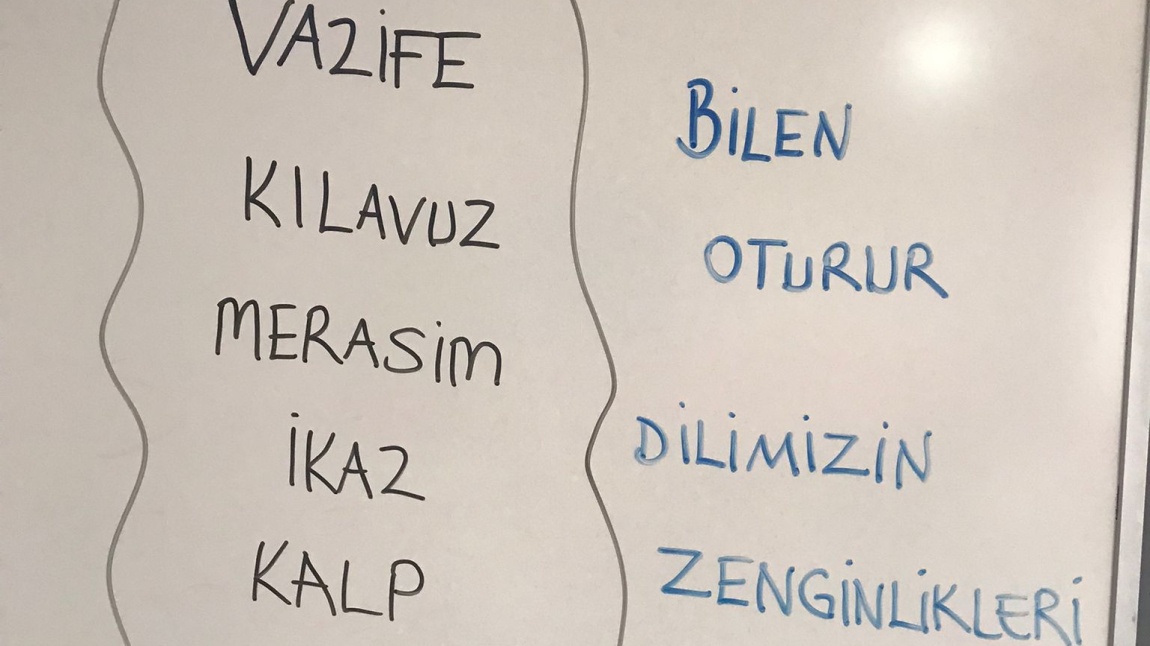 VAZİFE
KILAVUZ
MERASİM
İKAZ
KALP
BİLEN
OTURUR
DİLİMİZİN
ZENGİNLİKLERİ